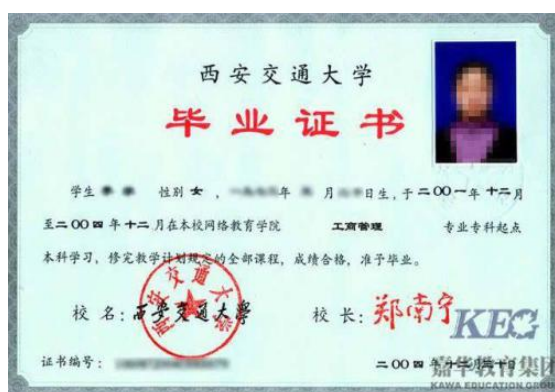 西安交通大学
毕业证书
学生 性别 女 ， 年 月 日生，于二〇〇一年十二月
至二〇〇四年十二月在本校网络教育学院 工商管理 专业专科起点
本科学习，修完教学计划规定的全部课程，成绩合格，准予毕业。
西安交通大学
校 名：西安交通大学 校 长：郑南宁
KEG
证书编号： 二〇〇四年十二月 日
嘉华教育集团
KAWA EDUCATION GROUP